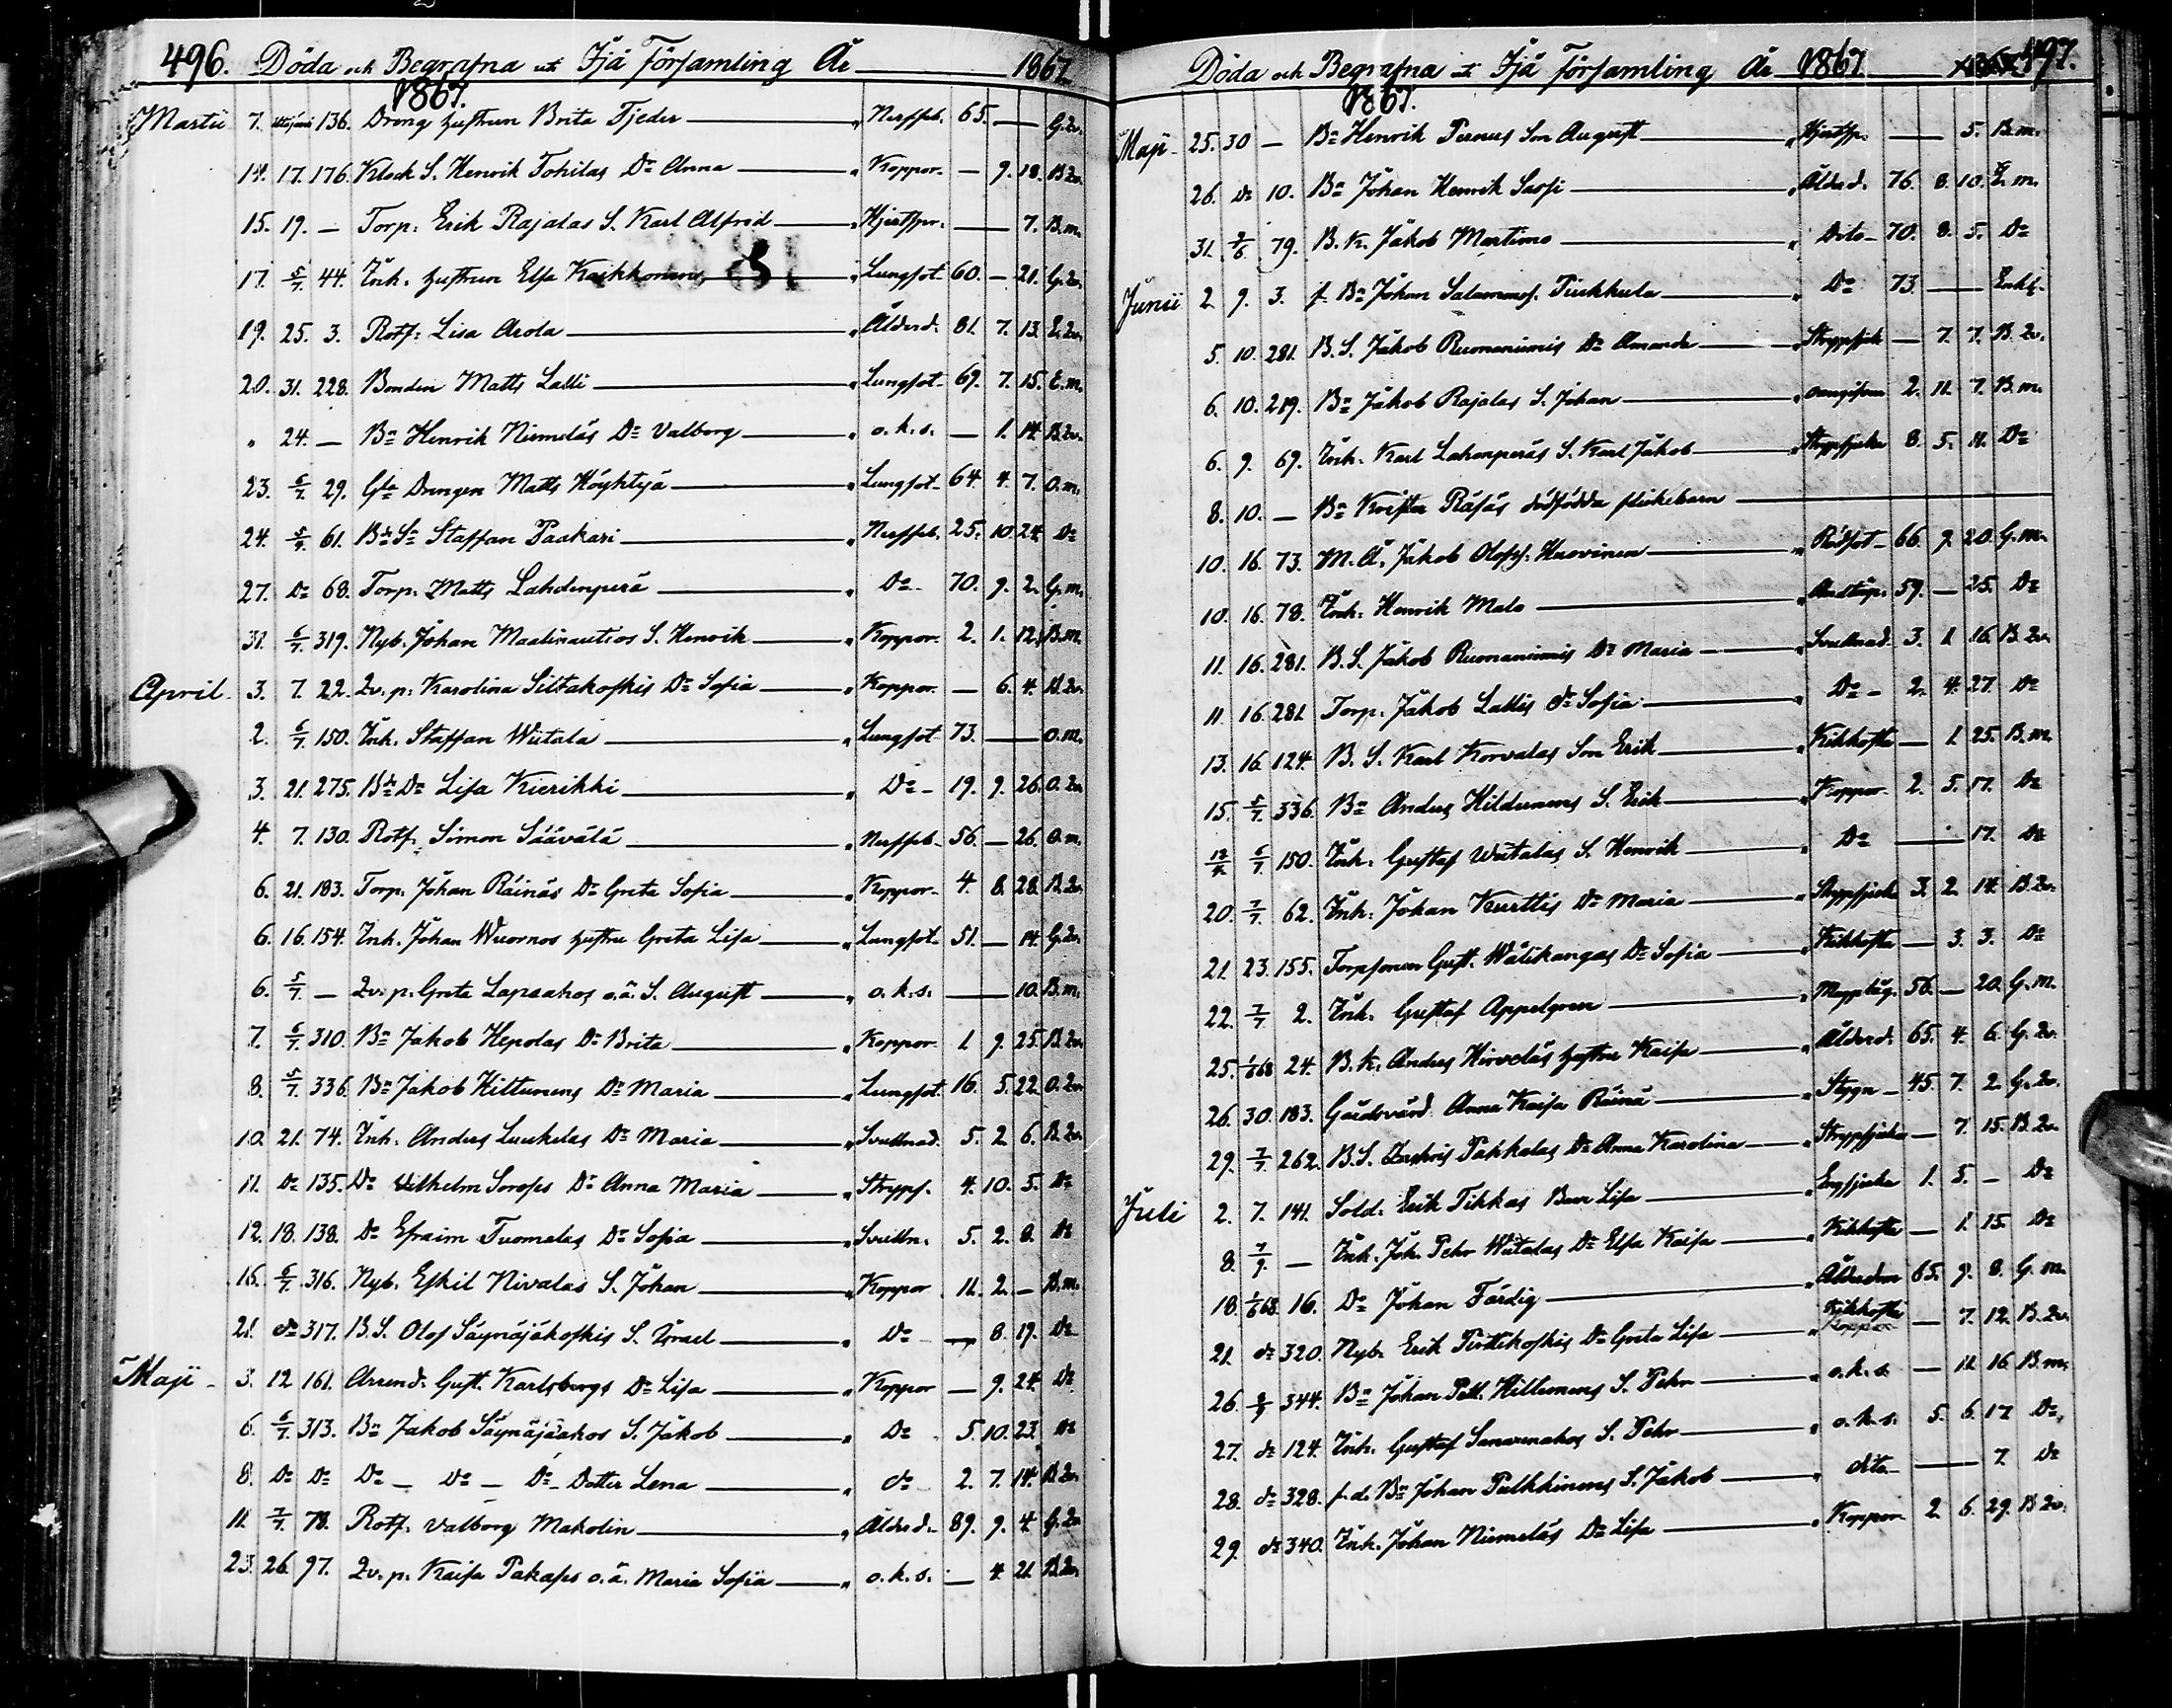 496. Döda och Begrafna uti Ijå Församling År 1867
1867.
Martii 7. 136. Dreng hustrun Brita Tjeder " Nerffeb. 65. — G.qv.
14. 17. 176. Klock S. Henrik Tohilas Dr Anna " Koppor. — 9. 18. B.qv.
15. 19. — Torp. Erik Rajalas S. Karl Alfred " Hjertspr. — 7. B.m.
17. 5/7. 44. Inh. hustrun Elsa " Lungsot. 60. — 21. G.qv.
19. 25. 3. Rotf. Lisa Arola " Ålderd. 81. 7. 13. E.qv.
20. 31. 228. Bonden Matts Lalli " Lungsot. 69. 7. 15. E.m.
" 24. — Bn Henrik Niemeläs Dr Valborg " o.k.s. — 1. 14. B.qv.
23. 6/7. 29. Gla Drengen Matts Höyhtyä " Lungsot. 64. 4. 7. O.m.
24. 5/7. 61. Bde Sn Staffan Paakari " Nerffeb. 25. 10. 24. Do
27. Do 68. Torp. Matts Lahdenperä " Do 70. 9. 2. G.m.
31. 6/7. 319. Nyb. Johan Maalinautios S. Henrik " Koppor. 2. 1. 12. B.m.
April. 3. 7. 22. Qv.p. Karolina Siltakoskis Dr Sofia " Koppor. — 6. 4. B.qv.
2. 6/7. 150. Inh. Staffan Wiitala " Lungsot 73. — O.m.
3. 21. 275. Bde Dr Lisa Kierikki " Do 19. 9. 26. O.qv.
4. 7. 130. Rotf. Simon Säävälä " Nerffeb. 56. — 26. O.m.
6. 21. 183. Torp. Johan Räinäs Dr Greta Sofia " Koppor. 4. 8. 28. B.qv.
6. 16. 154. Inh. Johan Wuornos hustru Greta Lisa " Lungsot. 51. — 14. G.qv.
6. 5/7. — Qv.p. Greta Lapaahos o.ä. S. August " o.k.s. — 10. B.m.
7. 6/7. 310. Bn Jakob Hepolas Dr Brita " Koppor 1. 9. 25. B.qv.
8. 5/7. 336. Bn Jakob Hiltunens Dr Maria " Lungsot. 16. 5. 22. O.qv.
10. 21. 74. Inh. Anders Luukelas Dr Maria " Svullnad. 5. 2. 6. B.qv.
11. Do 135. Do Wilhelm Sorsfs Dr Anna Maria " Strypsj. 4. 10. 5. Do
12. 18. 138. Do Efraim Tuomelas Dr Sofia " Svulln. 5. 2. 8. Do
16. 6/7. 316. Nyb. Eskil Nivalas S. Johan " Koppor 11. 2. — B.m.
21. do 317. B.S. Olof Säynäjäkoskis S. Israel " Do — 8. 19. Do
Maji - 3. 12. 161. Arrend. Gust. Karlsbergs Dr Lisa " Koppor — 9. 24. Do
6. 6/7. 313. Bn Jakob Säynäjäahos S. Jakob " Do 5. 10. 23. Do
8. Do Do Do — Do — Do Dotter Lena " do 2. 7. 14. B.qv.
11. 7/7. 78. Rotf. Valborg Makolin " Ålderd. 89. 9. 4. G.qv.
23. 26. 97. Qv.p. Kaisa Pakaps o.ä. Maria Sofia " o.k.s. — 4. 21. B.qv.
Döda och Begrafna uti Ijå Församling År 1867 497.
1867.
Maji - 25. 30 — Bn Henrik Pernus Son August " Hjertsp. — 5. B.m.
26. do 10. Bn Johan Henrik Sassi " Ålderd. 76. 8. 10. E.m.
31. 2/6 79. B.k. Jakob Martimo " Dito 70. 8. 5. Do
Junii 2. 9. 3. f. Bn Johan Salomonss. Pirkkula " Do 73. — Enkl.
5. 10. 281. B.S. Jakob Ruonaniemis Dr Amanda " Strypsjuk — 7. 7. B.qv.
6. 10. 219. Bn Jakob Rajalas S. Johan " 2. 11. 7. B.m.
6. 9. 69. Inh. Karl Lahenperäs S. Karl Jakob " Strypsjuka 8. 5. 11. Do
8. 10. — Bn Krister Räsäs dödfödda flickebarn
10. 16. 73. M.Å. Jakob Olofss. Huovinen " Rödsot 66. 9. 20. G.m.
10. 16. 78. Inh. Henrik Malo " Andtäp. 59. — 25. Do
11. 16. 281. B.S. Jakob Ruonaniemis Dr Maria " Svullnad. 3. 1. 16. B.qv.
11. 16. 281. Torp. Jakob Lallis dr Sofia " Do 2. 4. 27. Do
13. 16. 124. B.S. Karl Korvalas Son Erik " Kikhosta — 1. 25. B.m.
15. 5/7. 336. Bn Anders Hildunens S. Erik " Koppor. 2. 5. 17. Do
6/7. 150. Inh. Gustaf Wiitalas S. Henrik " Do — 17. Do
20. 7/7. 62. Inh. Johan Kurttis Dr Maria " Strypsjuka 3. 2. 14. B.qv.
21. 23. 155. Torpsonen Gust. Wälikangas Dr Sofia " Kikhosta — 3. 3. Do
22. 7/7. 2. Inh. Gustaf Appelgren " 56. — 20. G.m.
25. 1/6 68 24. B.k. Anders Hirveläs hustru Kaisa " Ålderd. 65. 4. 6. G.qv.
26. 30. 183. Gårdsvärd. Anna Kaisa Räinä " Stygn 45. 7. 2. G.qv.
29. 7/7. 262. B.S. Zachris Pakkalas Dr Anna Karolina " Strypsjuka — 7. 15. B.qv.
Juli 2. 7. 141. Sold. Erik Tikkas Barn Lisa " Engsjuka 1. 5. — Do
8. 7/9. — Inh. Joh. Pehr Wiitalas Dr Elsa Kaisa " Kikhosta — 1. 15. Do
18. 1/6 68. 16. Do Johan Färdig " Ålderdom 65. 9. 8. G.m.
21. do 320. Nyb. Erik Pirttikoskis Dr Greta Lisa " Kikhosta Koppor — 7. 12. B.qv.
26. 8/9 344. Bn Johan Pett. Hiltunens S. Pehr " o.k.s. — 11. 16. B.m.
27. do 124. Inh. Gustaf Sanavnahos S. Pehr " o.k.s. 5. 6. 17. Do
28. do 328. f.d. Bn Johan Pulkkinens S. Jakob " dito — 7. Do
29. do 340. Inh. Johan Niemeläs Dr Lisa " Koppor 2. 6. 29. B.qv.